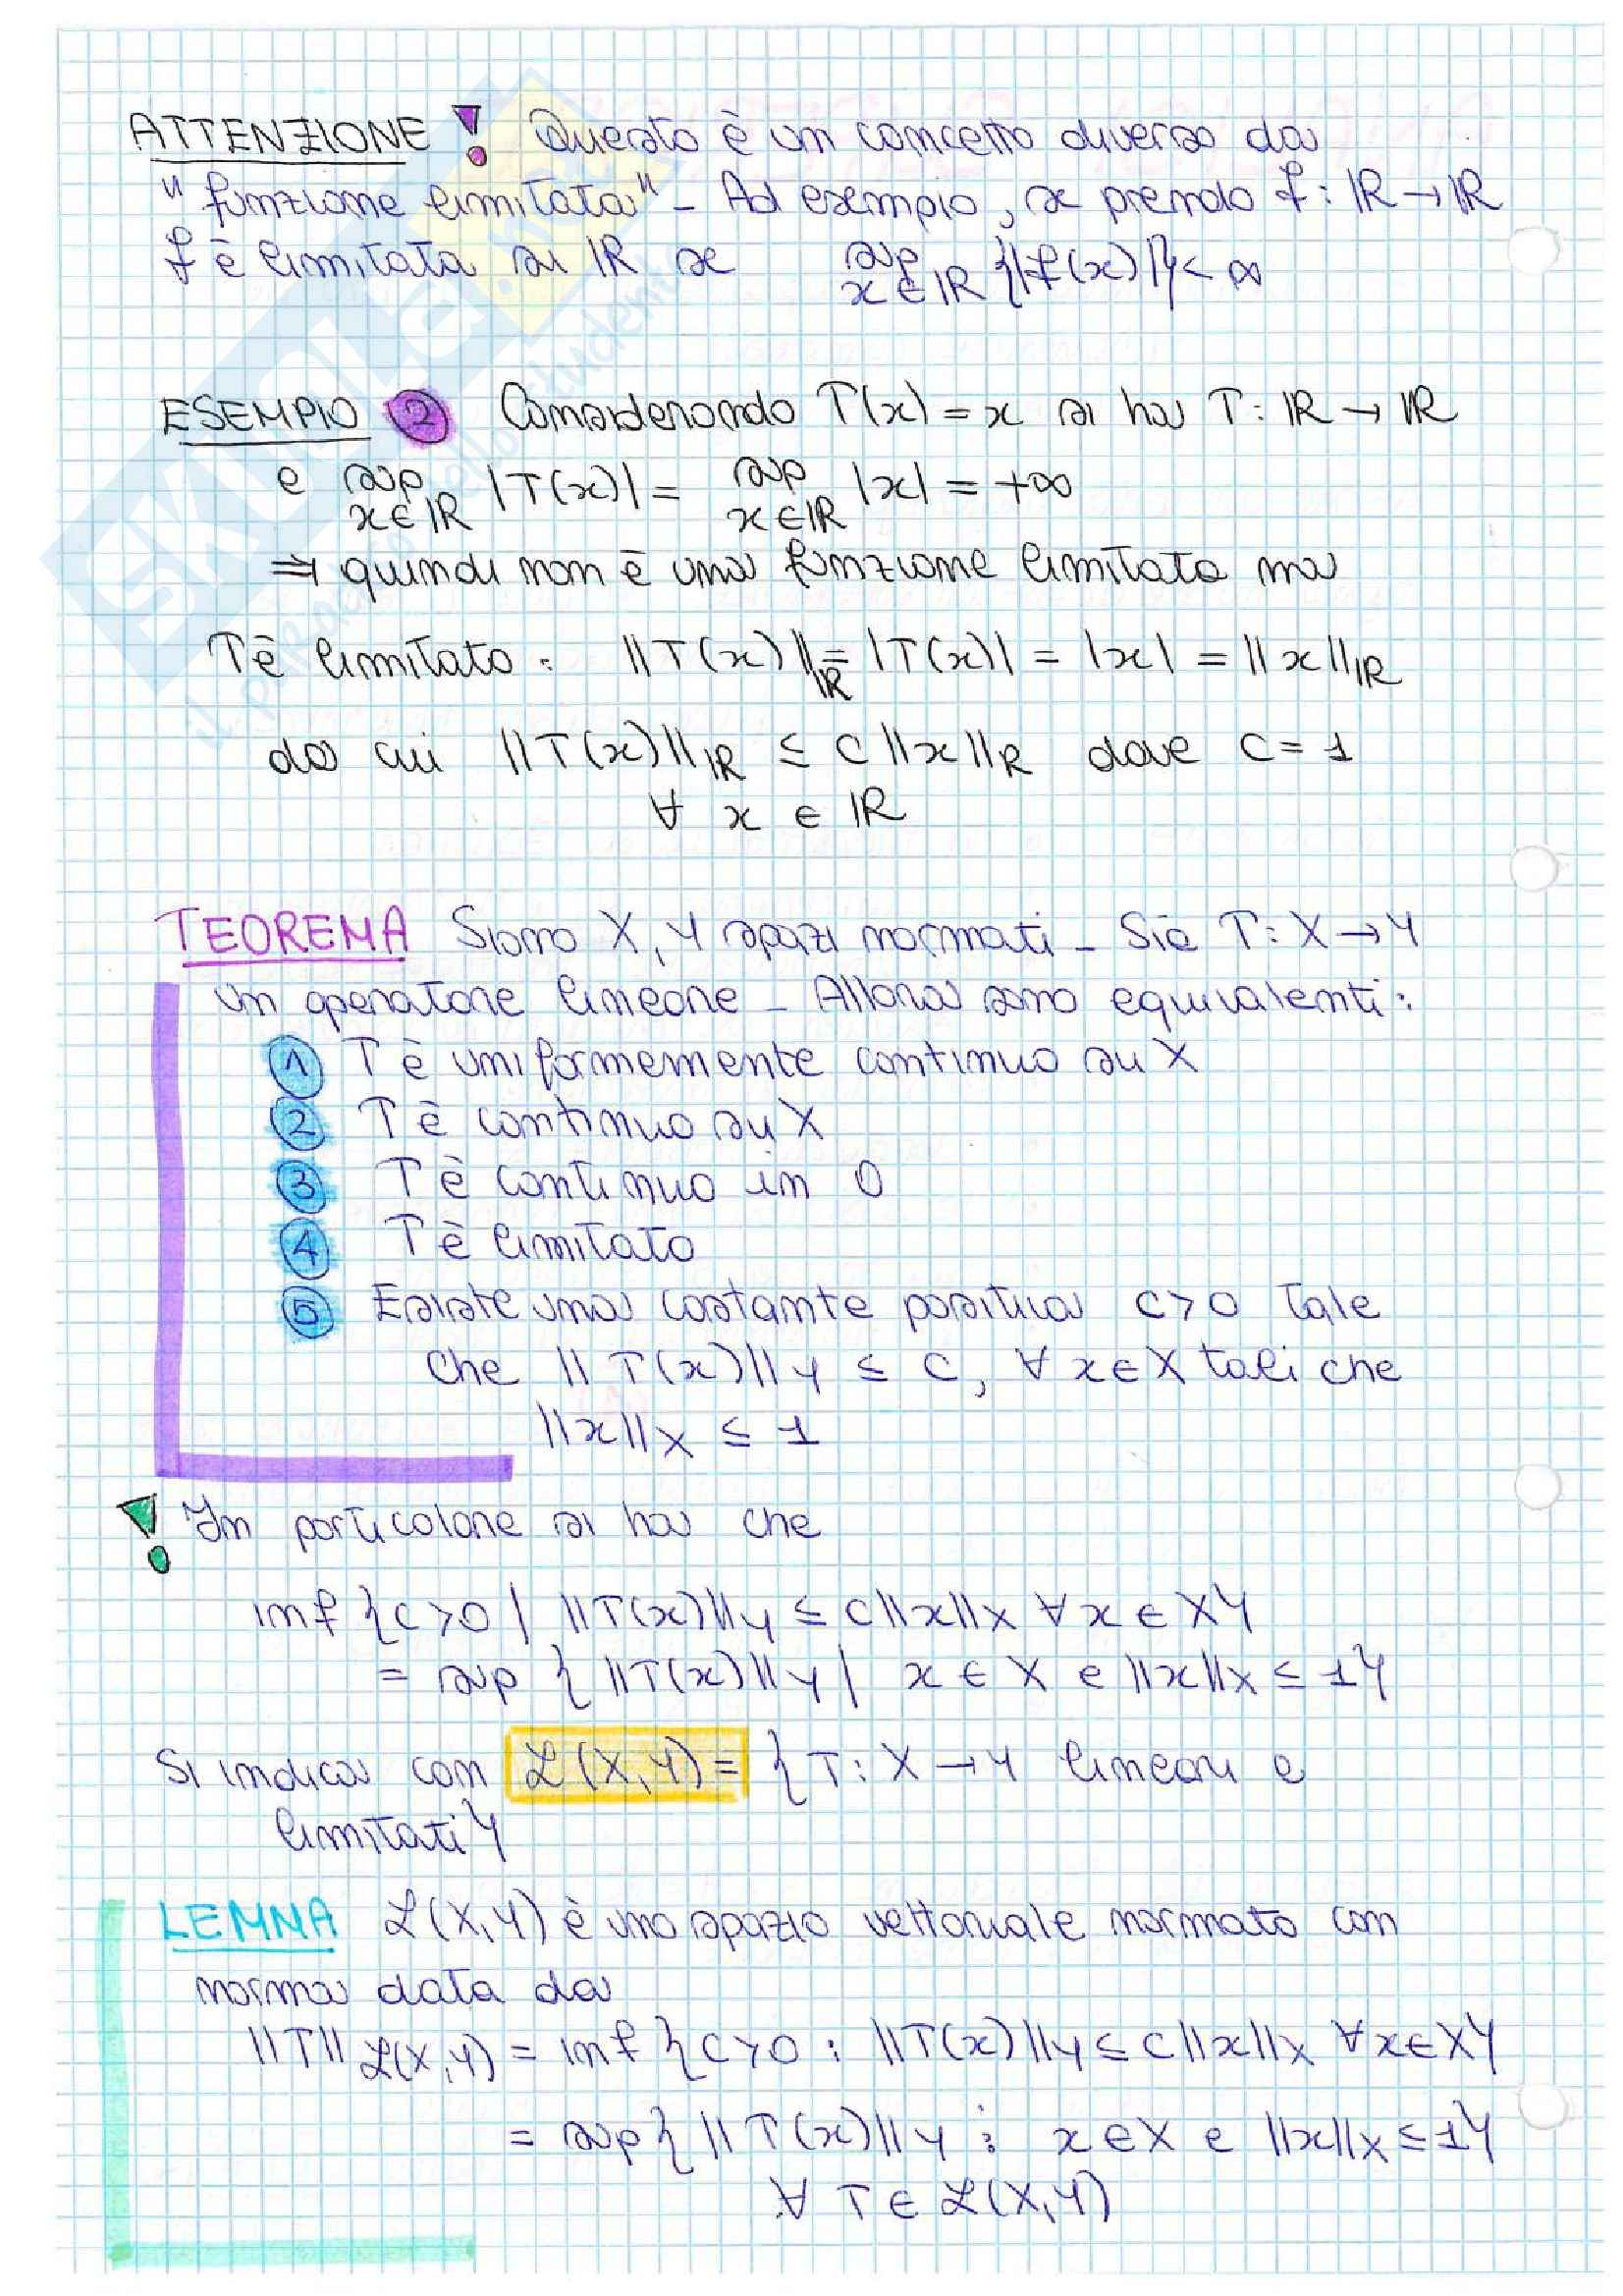 ATTENZIONE! Questo è un concetto diverso da
"funzione limitata" - Ad esempio, se prendo f: ℝ → ℝ
f è limitata su ℝ se sup {|f(x)|} < ∞
x ∈ ℝ
ESEMPIO 2 Considerando T(x) = x si ha T: ℝ → ℝ
e sup |T(x)| = sup |x| = +∞
x ∈ ℝ x ∈ ℝ
⇒ quindi non è una funzione limitata ma
T è limitato: ||T(x)||_ℝ = |T(x)| = |x| = ||x||_ℝ
da cui ||T(x)||_ℝ ≤ C ||x||_ℝ dove C = 1
∀ x ∈ ℝ
TEOREMA Siano X, Y spazi normati - Sia T: X → Y
un operatore lineare - Allora sono equivalenti:
1 T è uniformemente continuo su X
2 T è continuo su X
3 T è continuo in 0
4 T è limitato
5 Esiste una costante positiva C > 0 tale
che ||T(x)||_Y ≤ C, ∀ x ∈ X tali che
||x||_X ≤ 1
! In particolare si ha che
inf {C > 0 | ||T(x)||_Y ≤ C||x||_X ∀ x ∈ X}
= sup {||T(x)||_Y | x ∈ X e ||x||_X ≤ 1}
Si indica con ℒ(X,Y) = {T: X → Y lineari e
limitati}
LEMMA ℒ(X,Y) è uno spazio vettoriale normato con
norma data da
||T||_ℒ(X,Y) = inf {C > 0 : ||T(x)||_Y ≤ C||x||_X ∀ x ∈ X}
= sup {||T(x)||_Y : x ∈ X e ||x||_X ≤ 1}
∀ T ∈ ℒ(X,Y)
SKUOLA.net
il portale dello studente